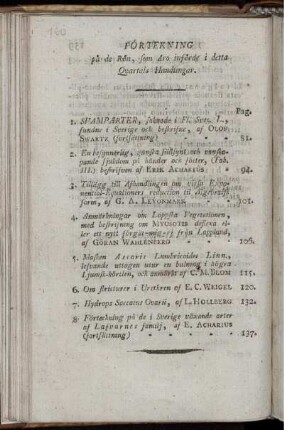 FÖRTEKNING
på de Rön, som äro införde i detta
Quartals Handlingar.
Pag.
1. SVAMPARTER, saknade i Fl. Svec. L.,
fundne i Sverige och beskrifne, af OLOF
SWARTZ (fortsättning) 81.
2. En besynnerlig, ganska sällsynt och
sjukdom på händer och fötter, (Tab.
III.) beskrifven af ERIK ACHARIUS 94.
3. Tillägg till Afhandlingen om vissa
Equationers reduction til
form, af G. A. LEYONMARK 101.
4. Anmärkningar om Lappska Vegetationen,
med beskrifning om MYOSOTIS deflexa
et nytt från Lappland,
af GÖRAN WAHLENBERG 106.
5. Masken Ascaris Lumbricoides Linn.
lefvande uttagen utur en bulning i högra
Ljumsk-körteln, och anmärkt af C. M. BLOM 115.
6. Om stricturer i Urethren af E. C. WEIGEL 120.
7. Hydrops Saccatus Ovarii, af L. HOLLBERG 132.
8. Förteckning på de i Sverige växande arter
af Lafvarnes familj, af E. ACHARIUS
(fortsättning) 137.